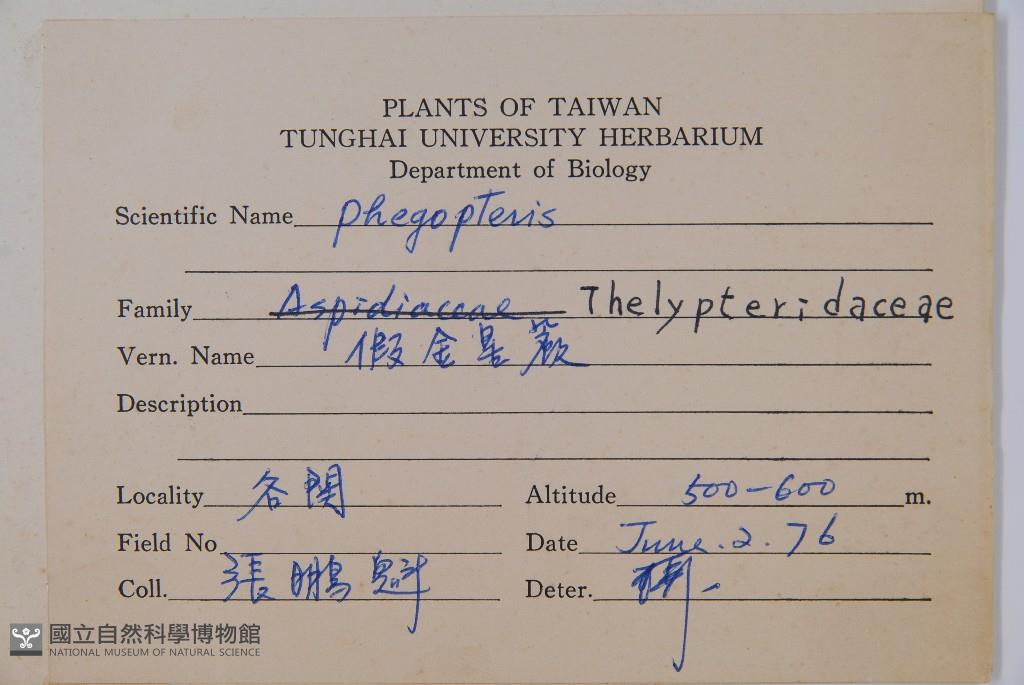 PLANTS OF TAIWAN
TUNGHAI UNIVERSITY HERBARIUM
Department of Biology
Scientific Name phegopteris
Family Aspidiaceae Thelypteridaceae
Vern. Name 假金星蕨
Description
Locality 谷関 Altitude 500-600 m.
Field No Date June.2.76
Coll. 張鵬魁 Deter.
國立自然科學博物館
NATIONAL MUSEUM OF NATURAL SCIENCE